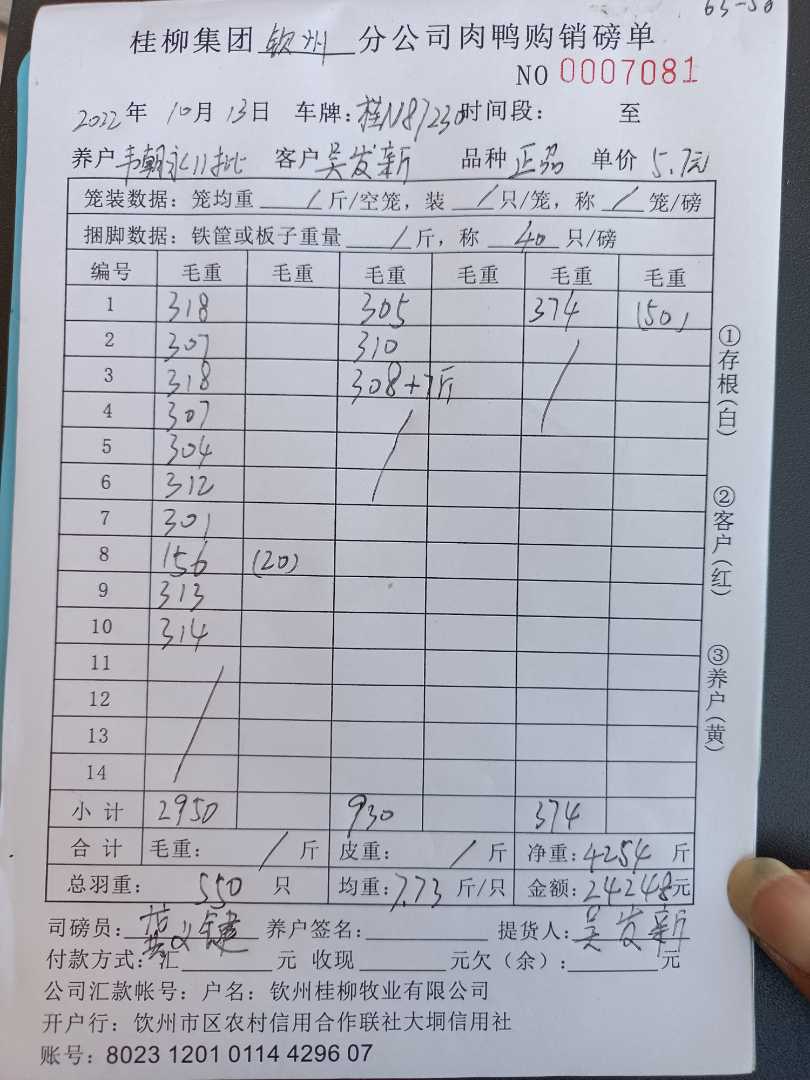 63-50
桂柳集团 钦州 分公司肉鸭购销磅单
NO 0007081
2022年 10月 13日 车牌:桂N87230时间段: 至
养户 韦朝永11批 客户 吴发新 品种 正品 单价 5.7元
笼装数据:笼均重 / 斤/空笼,装 / 只/笼,称 / 笼/磅
捆脚数据:铁筐或板子重量 / 斤,称 40 只/磅
编号 毛重 毛重 毛重 毛重 毛重 毛重
1 318 305 374 (50)
2 307 310 /
3 318 308+7斤
4 307 /
5 304
6 312
7 301
8 156 (20)
9 313
10 314
11 /
12
13
14
小计 2950 930 374
合计 毛重: / 斤 皮重: / 斤 净重:4254 斤
总羽重: 550 只 均重:7.73 斤/只 金额:24248元
司磅员: 养户签名: 提货人:吴发新
付款方式:汇 元 收现 元欠(余): 元
公司汇款帐号:户名:钦州桂柳牧业有限公司
开户行:钦州市区农村信用合作联社大垌信用社
账号:8023 1201 0114 4296 07
①存根(白)
②客户(红)
③养户(黄)